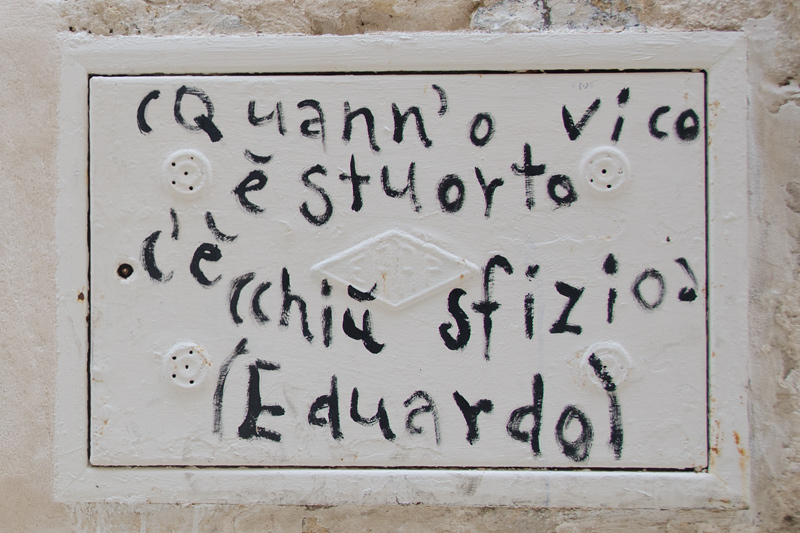 “Quann’o vico
è stuorto
c’è
cchiù sfizio”
(Eduardo)